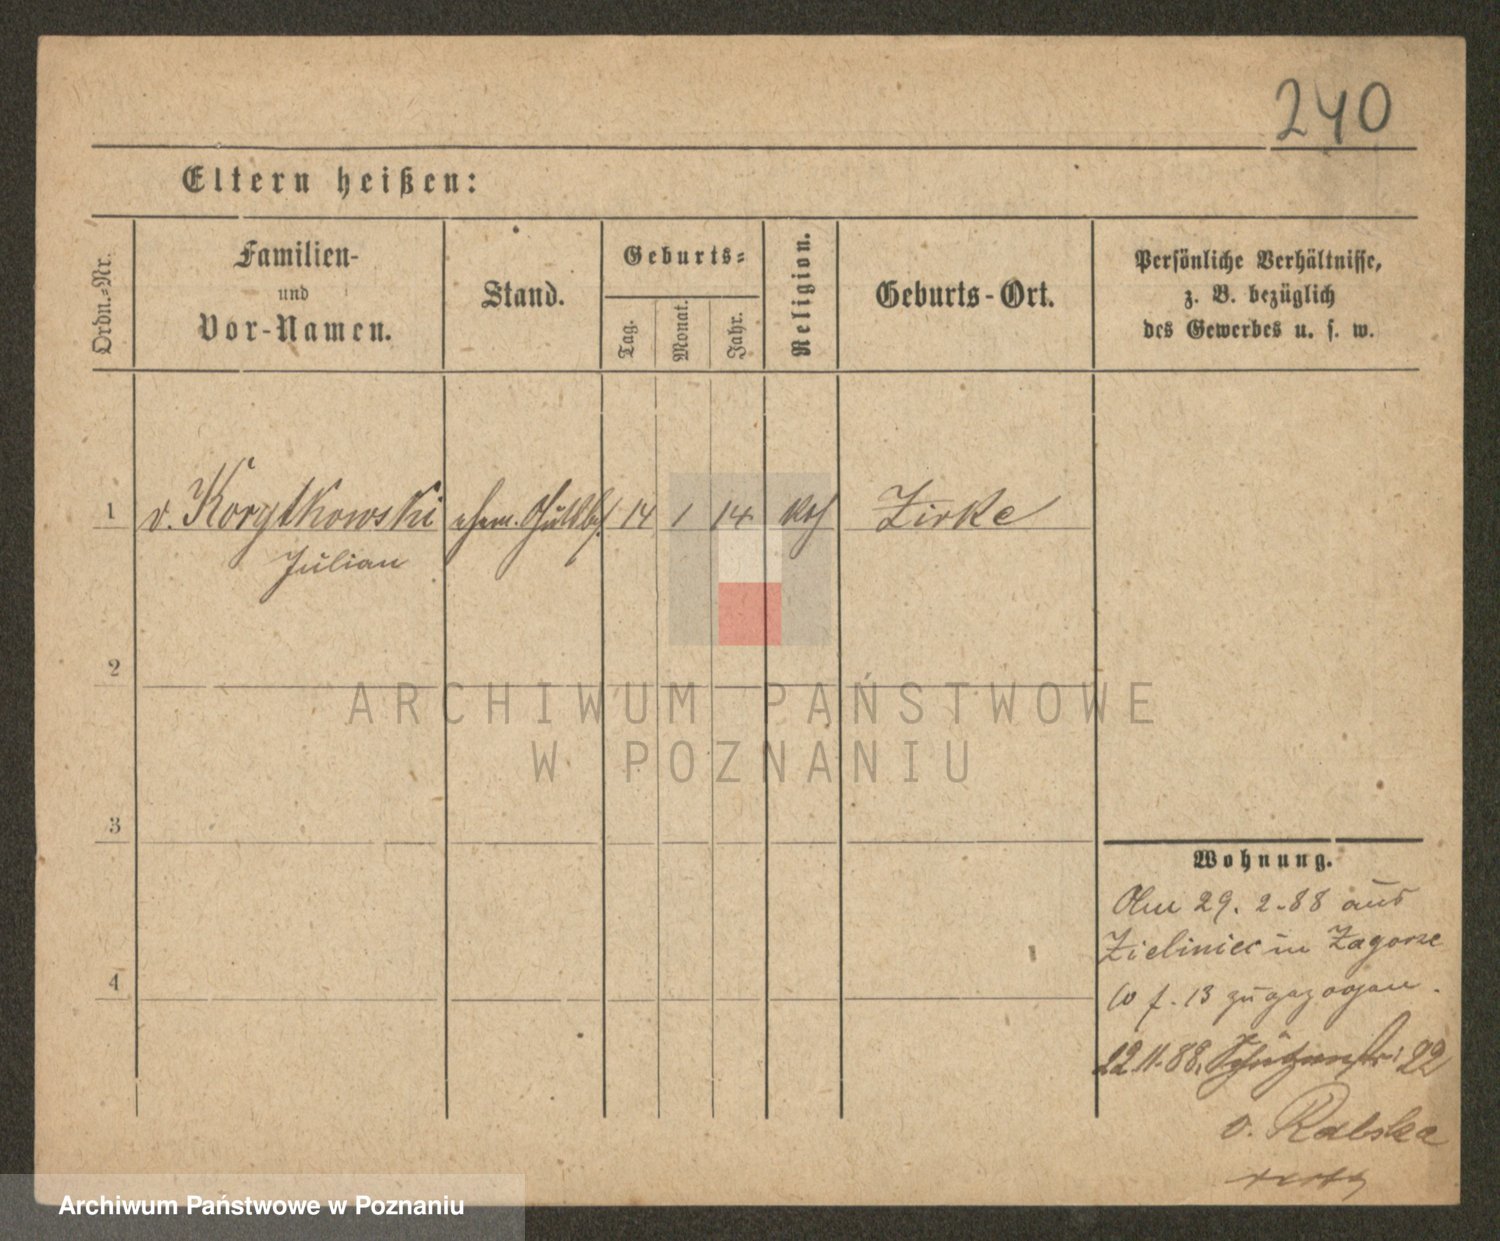 240
Eltern heißen:
Ordn.-Nr.
Familien-
und
Vor-Namen.
Stand.
Geburts-
Tag.
Monat.
Jahr.
Religion.
Geburts-Ort.
Persönliche Verhältnisse,
z. B. bezüglich
des Gewerbes u. s. w.
1 v. Korytkowski ehem. 14 1 14 kth Zirke
Julian
2
3
4
ARCHIWUM PAŃSTWOWE
W POZNANIU
Wohnung.
Am 29. 2.88 aus
Zieliniec in Zagorze
13 zugezogen.
22.11.88. Schützenstr: 22
v. Rabska
Archiwum Państwowe w Poznaniu